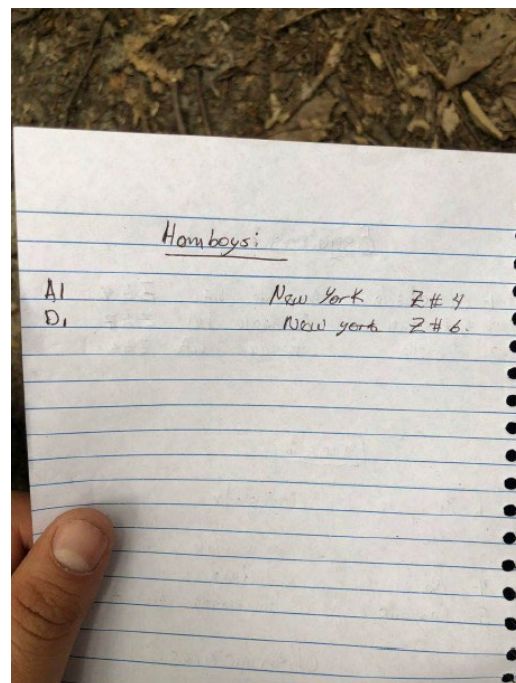 Homboys:
A1 New York Z# 4
D1 New york Z# 6.